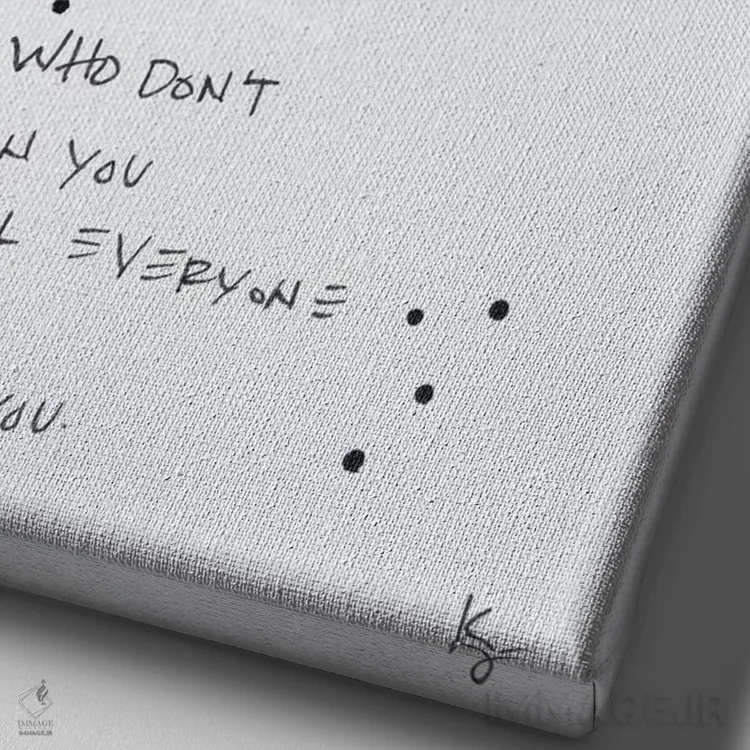 WHO DON'T
N YOU
L EVERYONE
YOU.
IMMAGE
IMMAGE.IR
IMMAGE.IR